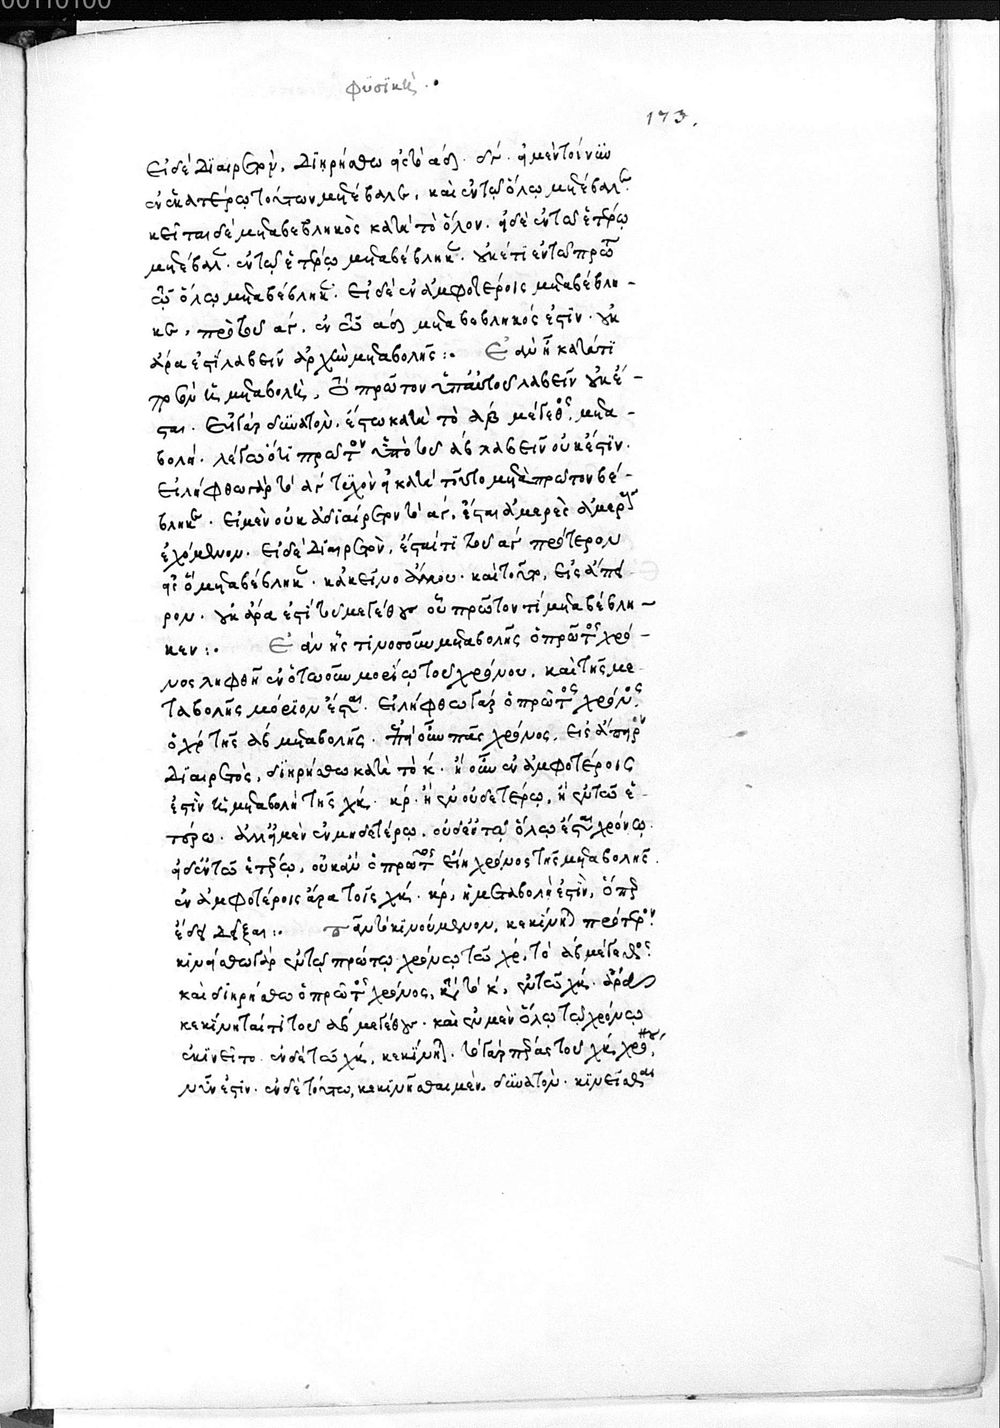 00110100
φϋσϊκῆς ·
173.
Εἰ δὲ διαιρετὸν, διῃρήσθω ᾗ ἐστὶ τὸ αδ. δγ. ἢ μέντοι νῦν
ἐν ἑκατέρῳ τούτων μετέβαλε, καὶ ἐν τῷ ὅλῳ μετέβαλεν
κεῖται δὲ μεταβεβληκὸς κατὰ τὸ ὅλον. ἢ δὲ ἐν τῷ ἑτέρῳ
μετέβαλ. ἐν τῷ ἑτέρῳ μεταβέβληκ. οὐκέτι ἐν τῷ πρώτῳ
ᾧ ὅλῳ μεταβέβληκε. Εἰ δὲ ἐν ἀμφοτέροις μεταβέβλη-
κε, πρὸ τοῦ αγ. ἐν ᾧ αδ μεταβεβληκός ἐστιν. οὐκ
ἄρα ἐστὶ λαβεῖν ἀρχὴν μεταβολῆς :. Ἐὰν ᾖ κατά τι
μεταβολὴ, πρῶτον τοῦ λαβεῖν οὐκ ἔ-
σται. Εἰ γὰρ δυνατὸν, ἔστω κατὰ τὸ αβ μέγεθος μετα-
βολή. λέγω ὅτι πρῶτον τοῦ αβ λαβεῖν οὐκ ἔστιν.
Εἰλήφθω γὰρ τὸ αγ τυχὸν ᾗ κατὰ τοῦτο μετὰ πρῶτον βέ-
βληκε. Εἰ μὲν οὐκ ἀδιαίρετον τὸ αγ, ἔσται ἀμερὲς ἀμεροῦς
ἐχόμενον. Εἰ δὲ διαιρετὸν, ἔσται τι τοῦ αγ πρότερον
εἰς ὃ μεταβέβληκε. κἀκείνου ἄλλου. καὶ τοῦτο, εἰς ἄπει-
ρον. οὐκ ἄρα ἐστὶ τοῦ μεγέθους οὗ πρῶτόν τι μεταβέβλη-
κεν :. Ἐὰν ᾖς τινοσοῦν μεταβολῆς ὁ πρῶτος χρό-
νος ληφθῇ ἐν ὁτῳοῦν μορίῳ τοῦ χρόνου, καὶ τῆς με-
ταβολῆς μόριον ἔσται. Εἰλήφθω γὰρ ὁ πρῶτος χρόνος
ὁ χρ τῆς αβ μεταβολῆς. ἐπεὶ οὖν πᾶς χρόνος, εἰς ἄπειρον
διαιρετὸς, διῃρήσθω κατὰ τὸ κ. ἢ οὖν ἐν ἀμφοτέροις
ἐστὶν ἡ μεταβολὴ τῆς χκ. κρ. ἢ ἐν οὐδετέρῳ, ἢ ἐν τῷ ἑ-
τέρῳ. ἀλλ' ᾖ μὲν ἐν μηδετέρῳ. οὐδ' ἐν τῷ ὅλῳ ἔσται χρόνῳ.
ᾗ δ' ἐν τῷ ἑτέρῳ, οὐκ ἂν ὁ πρῶτος εἴη χρόνος τῆς μεταβολῆς.
ἐν ἀμφοτέροις ἄρα τοῖς χκ. κρ, ἡ μεταβολὴ ἐστὶν, ὅπερ
ἔδει δεῖξαι :. πᾶν τὸ κινούμενον, κεκίνηται πρότερον.
κινήσθω γὰρ ἐν τῷ πρώτῳ χρόνῳ τῷ χρ, τὸ αβ μέγεθος
καὶ διῃρήσθω ὁ πρῶτος χρόνος, κατὰ τὸ κ, ἐν τῷ χκ. ἄρα
κεκίνηταί τι τοῦ αβ μεγέθους. καὶ ἐν μὲν ὅλῳ τῷ χρόνῳ
ἐκινεῖτο. ἐν δὲ τῷ χκ, κεκίνηται. τὸ γὰρ πέρας τοῦ χκ χρόνου,
νῦν ἐστιν. ἐν δὲ τούτῳ, κεκινῆσθαι μὲν. δυνατὸν. κινεῖσθαι